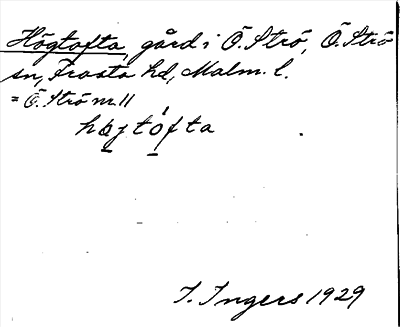 Högtofta, gård i Ö. Strö, Ö. Strö
sn, Frosta hd, Malm. l.
= Ö. Strö m. 11
höjtófta
I. Ingers 1929